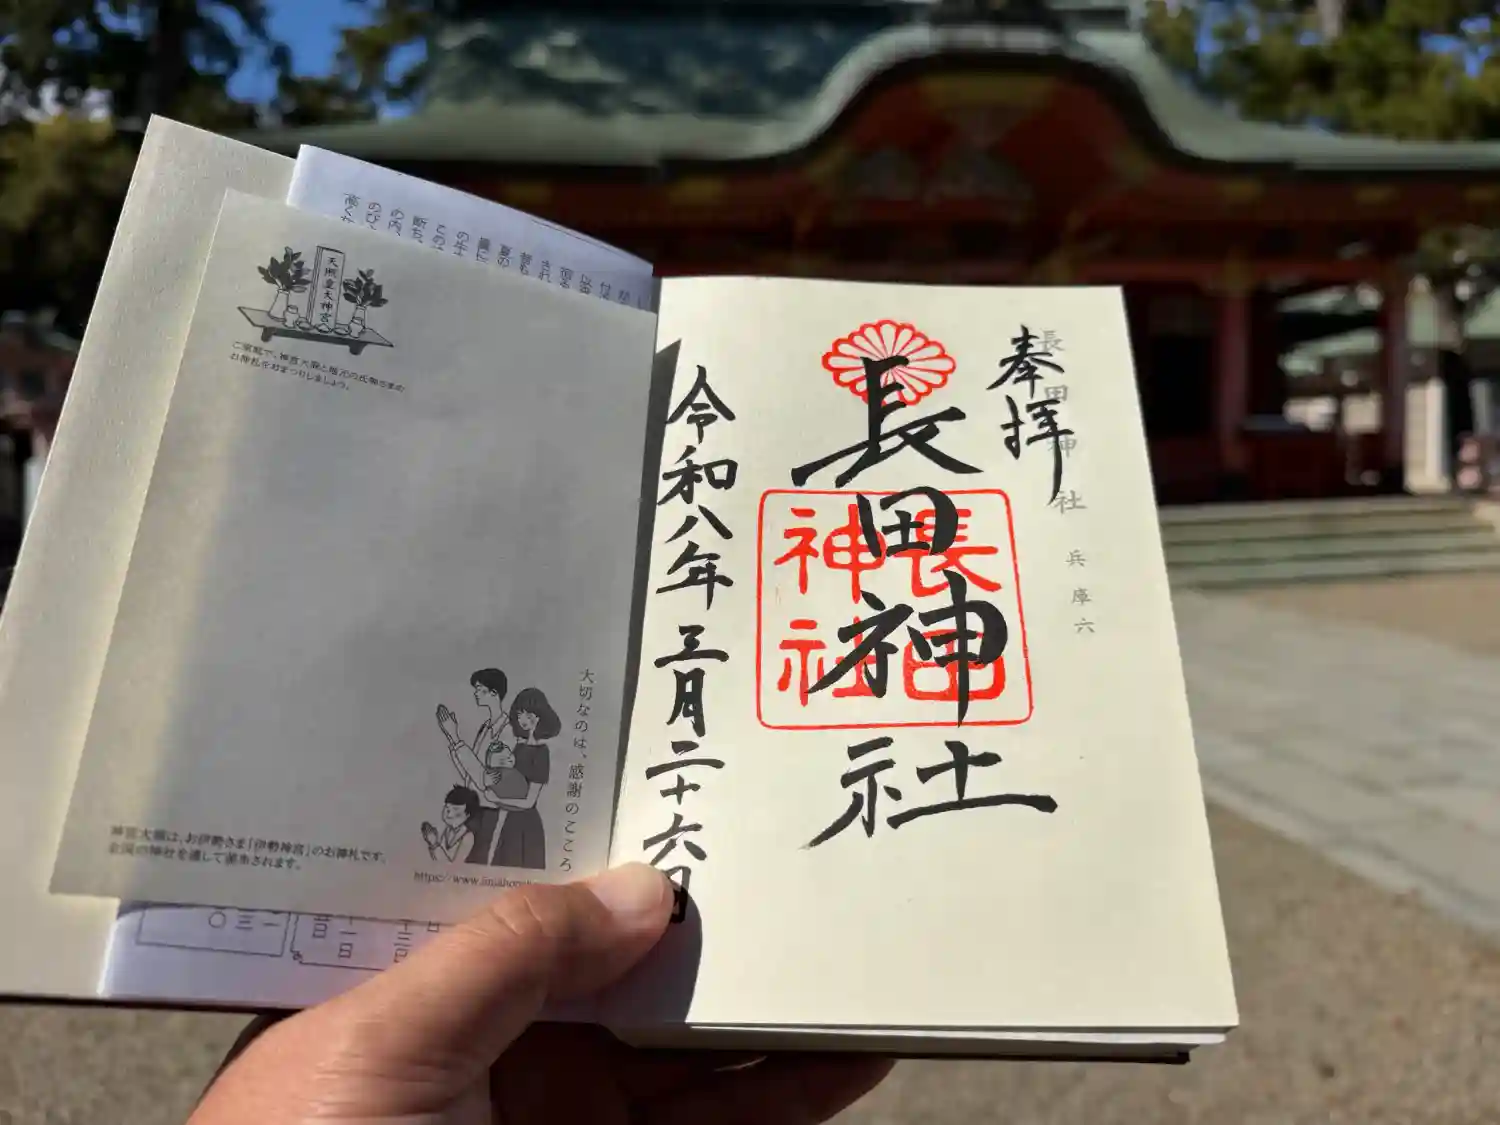 奉拝
長田神社 兵庫六
長田神社
長田
神社
令和八年三月二十六日
天照皇大神宮
ご家庭で、神宮大麻と地元の氏神さまの
お神札をおまつりしましょう。
大切なのは、感謝のこころ
神宮大麻は、お伊勢さま「伊勢神宮」のお神札です。
全国の神社を通して頒布されます。